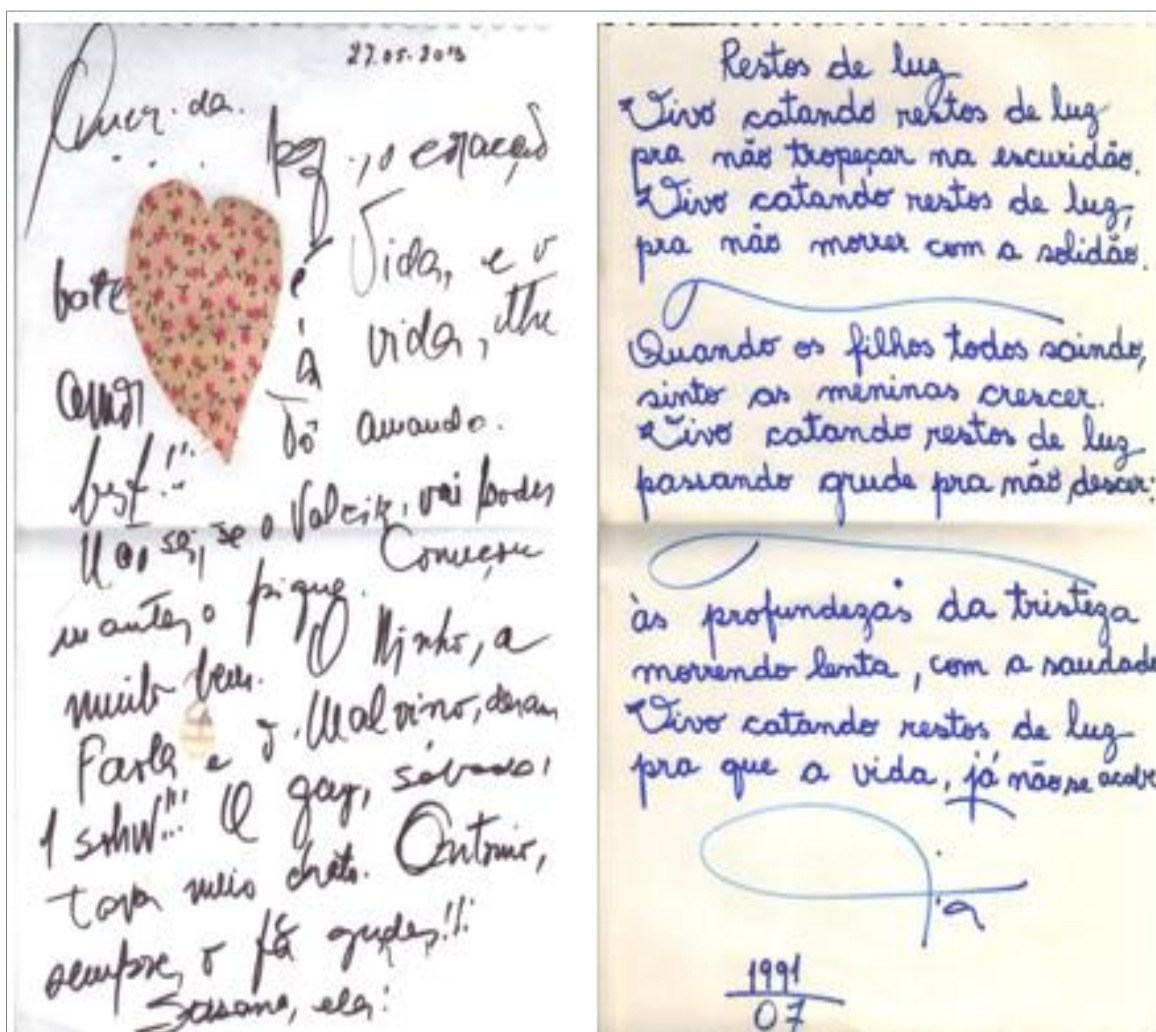 27.05.2013
Querida.
o coração
Vida, e o
bate é vida,
a
amor Tô amando.
Não sei, se o vai poder
manter o pique. Começou
muito bem. O Ninho, a
e o Malvino, deram
1 sohw!!! O gay, sábado,
tava meio chato. Antonio,
sempre, o
Sosana, ela:
Restos de luz
Vivo catando restos de luz
pra não tropeçar na escuridão.
Vivo catando restos de luz,
pra não morrer com a solidão.
Quando os filhos todos saindo,
sinto as meninas crescer.
Vivo catando restos de luz
passando grude pra não descer:
às profundezas da tristeza
morrendo lenta, com a saudade
Vivo catando restos de luz
pra que a vida, já não se acabe
1991
07